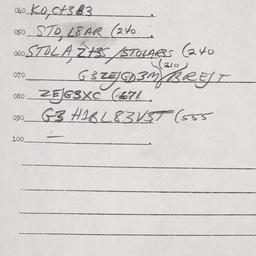 040 KO,C+383
050 STO,L8AR (240
060 STOLA,Z+35/STOLARS (240
(210)
070 G3ZE/GD3M/BREIT
080 ZE/G3XC (671
090 G3 H1BL83V3T (555
100 —